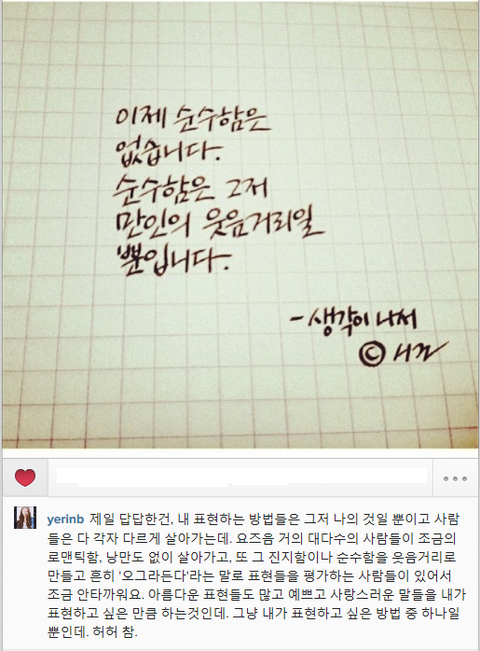 이제 순수함은
없습니다.
순수함은 그저
만인의 웃음거리일
뿐입니다.
- 생각이 나서
©
yerinb 제일 답답한건, 내 표현하는 방법들은 그저 나의 것일 뿐이고 사람
들은 다 각자 다르게 살아가는데. 요즈음 거의 대다수의 사람들이 조금의
로맨틱함, 낭만도 없이 살아가고, 또 그 진지함이나 순수함을 웃음거리로
만들고 흔히 '오그라든다'라는 말로 표현들을 평가하는 사람들이 있어서
조금 안타까워요. 아름다운 표현들도 많고 예쁘고 사랑스러운 말들을 내가
표현하고 싶은 만큼 하는것인데. 그냥 내가 표현하고 싶은 방법 중 하나일
뿐인데. 허허 참.